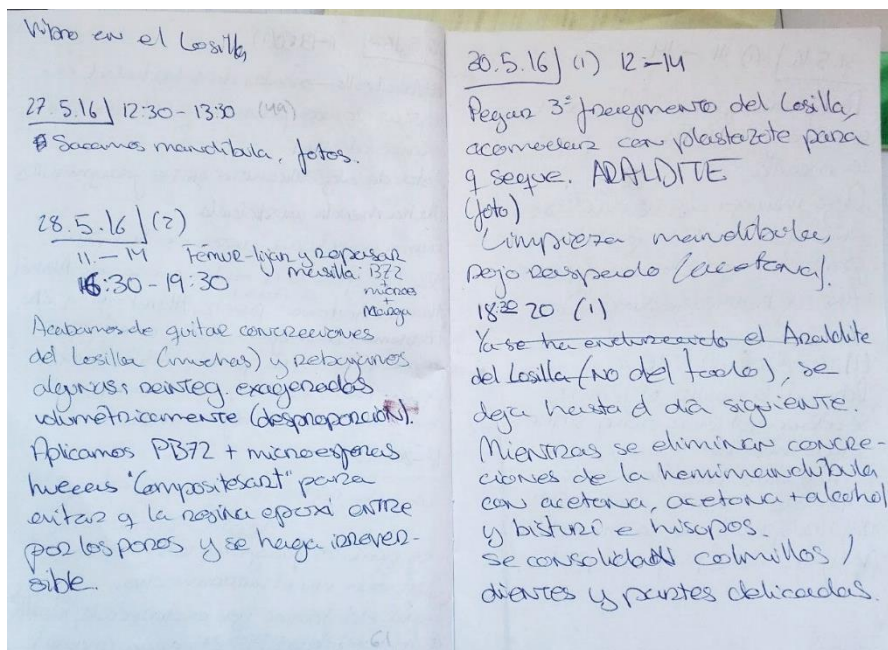 en el Losilla
27.5.16 12:30 - 13:30
Sacamos mandíbula, fotos.
28.5.16 (2)
11 - 14 Femur-lijar y repasar
masilla: B72
+
micros
+
16:30 - 19:30
Acabamos de quitar concreciones
del Losilla (muchas) y rebajamos
algunas reinteg. exageradas
volumétricamente (desproporción).
Aplicamos PB72 + microesferas
huecas "Compositesart" para
evitar q la resina epoxi entre
por los poros y se haga irrever-
sible.
61
(1) 12-14
Pegar 3º fragmento del Losilla,
acomodar con plastazote para
q seque. ARALDITE
(foto)
Limpieza mandíbula,
raspado (acetona).
18:30 20 (1)
Ya se ha endurecido el Araldite
del Losilla (NO del todo), se
deja hasta el día siguiente.
Mientras se eliminan concre-
ciones de la hemimandíbula
con acetona, acetona + alcohol
y bisturí e hisopos.
se consolidan colmillos,
dientes y partes delicadas.